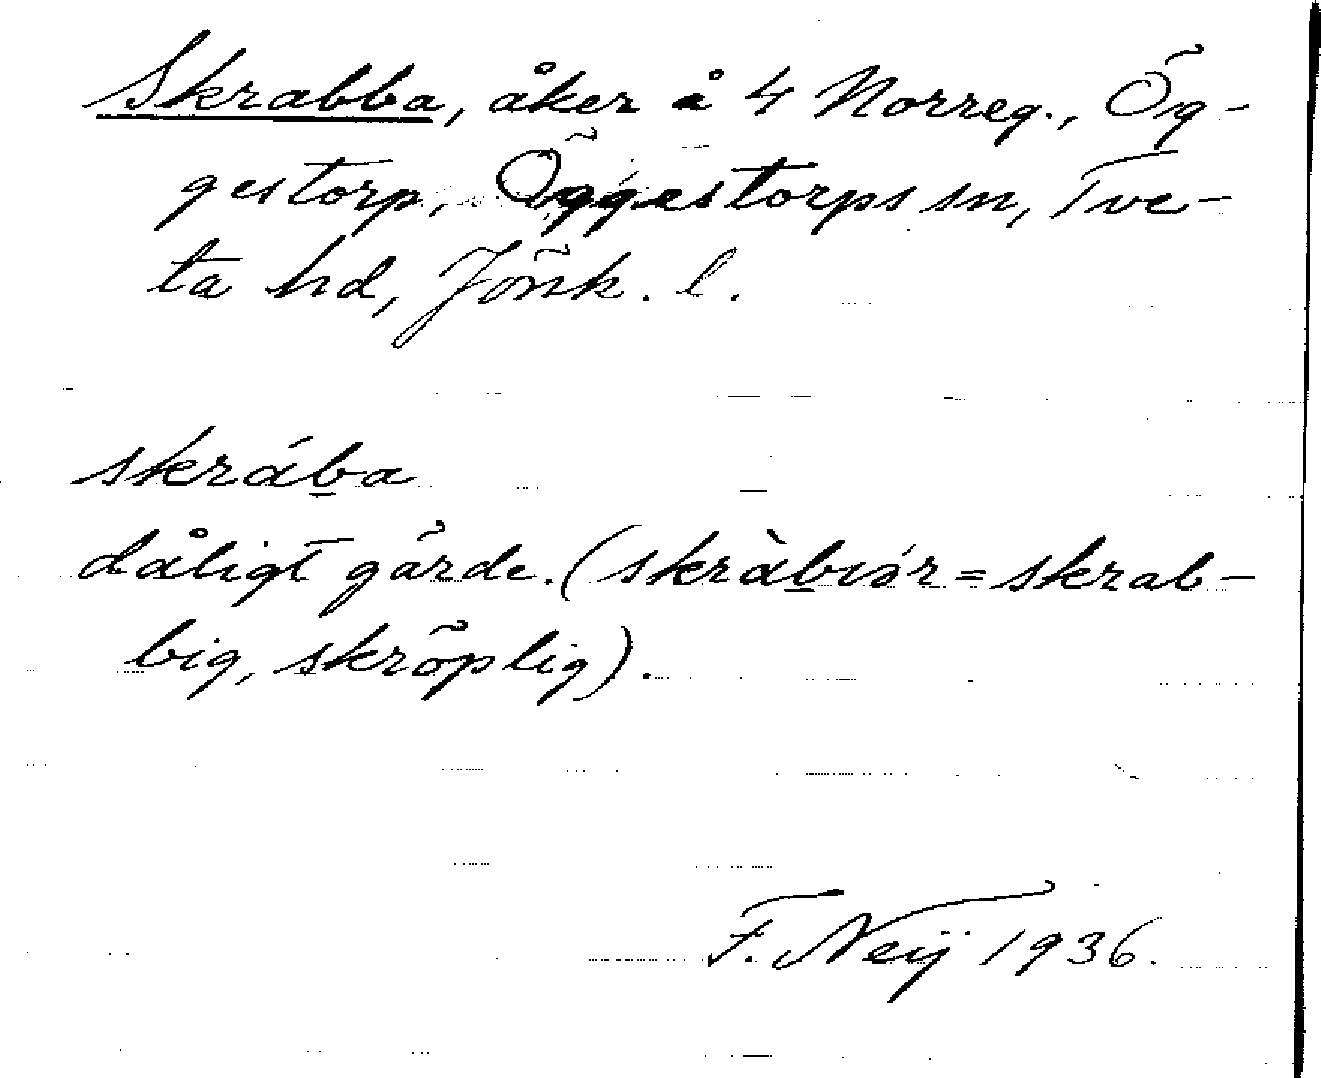 Skrabba, åker å 4 Norreg., Ög-
gestorp, Öggestorps sn, Tve-
ta hd, Jönk. l.
skrába
dåligt gärde. (skràbıər = skrab-
big, skröplig).
F. Neij 1936.